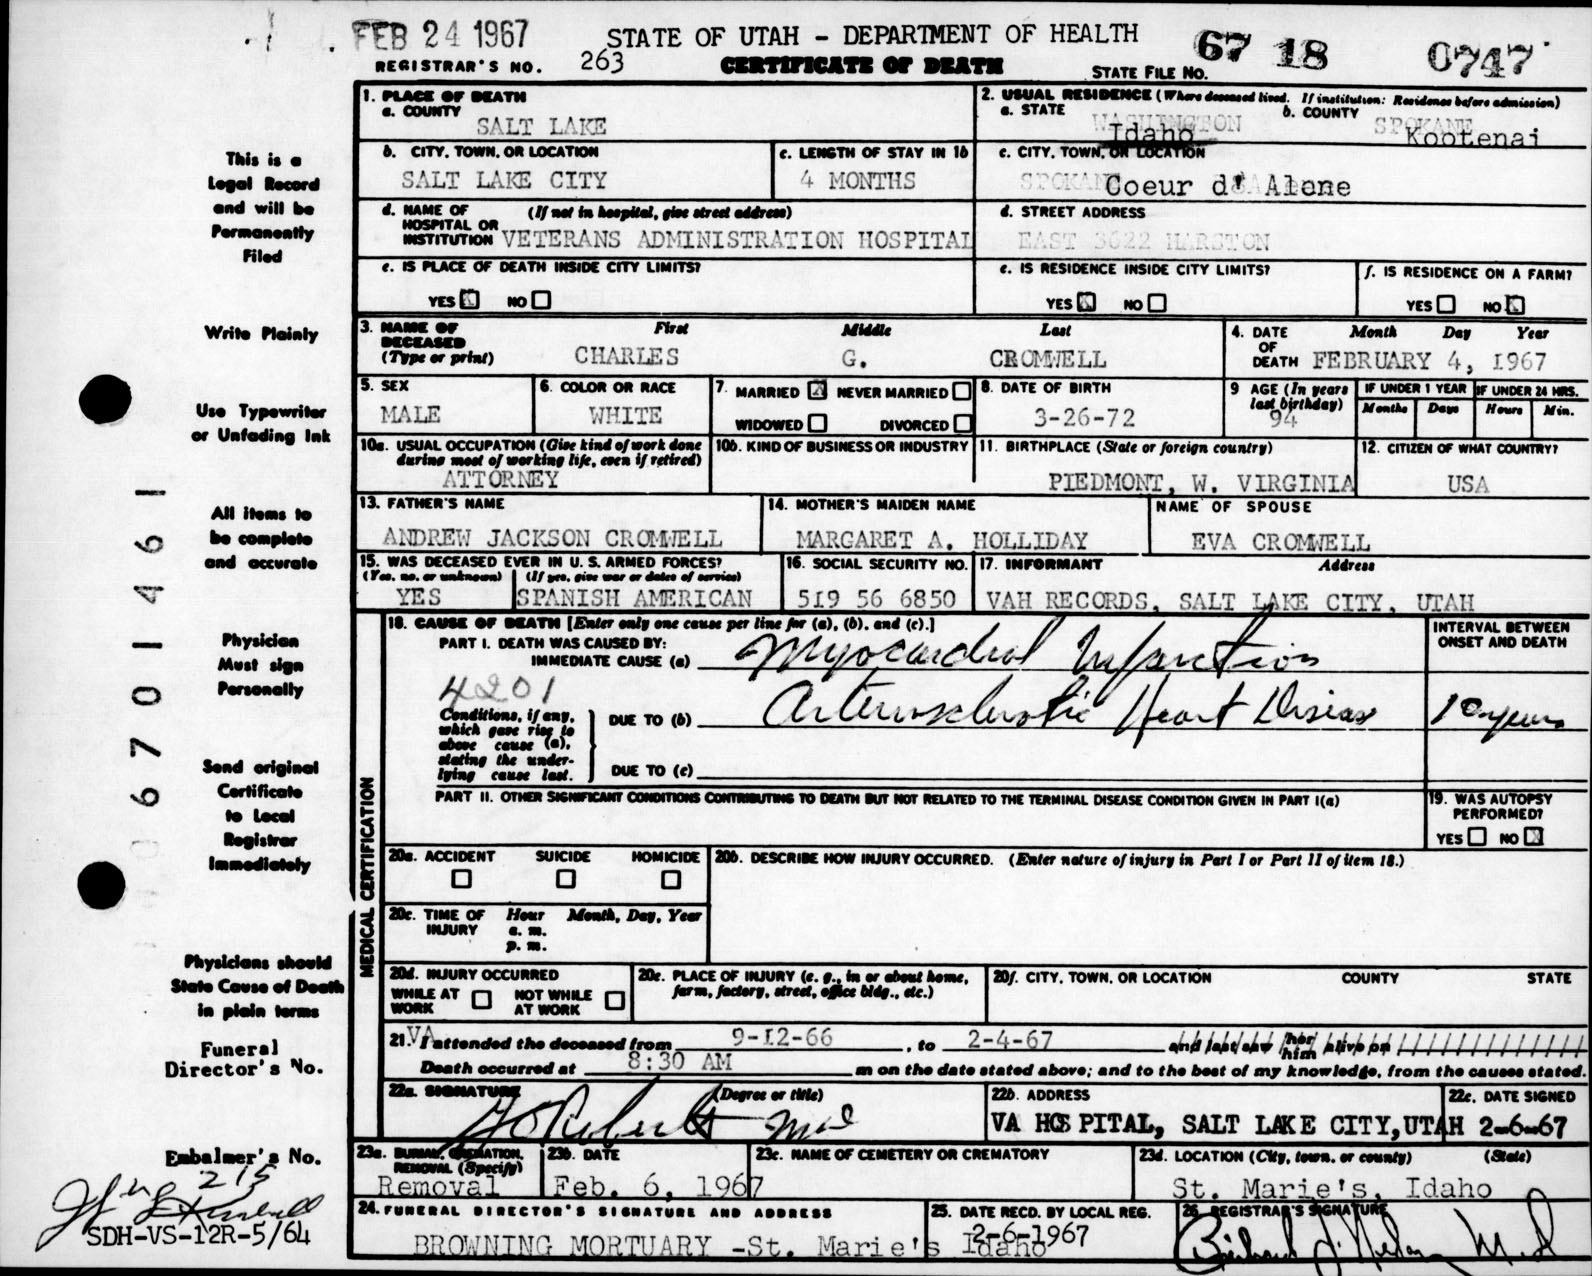 FEB 24 1967
STATE OF UTAH - DEPARTMENT OF HEALTH
67 18 0747
REGISTRAR'S NO. 263
CERTIFICATE OF DEATH
STATE FILE NO.
This is a
Legal Record
and will be
Permanently
Filed
Write Plainly
Use Typewriter
or Unfading Ink
All items to
be complete
and accurate
Physician
Must sign
Personally
Send original
Certificate
to Local
Registrar
Immediately
Physicians should
State Cause of Death
in plain terms
Funeral
Director's No.
Embalmer's No.
215
SDH-VS-12R-5/64
0 6 7 0 1 4 6 1
1. PLACE OF DEATH
a. COUNTY
SALT LAKE
2. USUAL RESIDENCE (Where deceased lived. If institution: Residence before admission)
a. STATE
WASHINGTON
Idaho
b. COUNTY
SPOKANE
Kootenai
b. CITY, TOWN, OR LOCATION
SALT LAKE CITY
c. LENGTH OF STAY IN 1b
4 MONTHS
c. CITY, TOWN, OR LOCATION
Coeur d' Alone
d. NAME OF (If not in hospital, give street address)
HOSPITAL OR
INSTITUTION VETERANS ADMINISTRATION HOSPITAL
d. STREET ADDRESS
EAST 3622 HARSTON
e. IS PLACE OF DEATH INSIDE CITY LIMITS?
YES X NO
e. IS RESIDENCE INSIDE CITY LIMITS?
YES X NO
f. IS RESIDENCE ON A FARM?
YES NO X
3. NAME OF
DECEASED
(Type or print)
First Middle Last
CHARLES G. CROMWELL
4. DATE
OF
DEATH
Month Day Year
FEBRUARY 4, 1967
5. SEX
MALE
6. COLOR OR RACE
WHITE
7. MARRIED X NEVER MARRIED
WIDOWED DIVORCED
8. DATE OF BIRTH
3-26-72
9 AGE (In years
last birthday)
94
IF UNDER 1 YEAR
Months Days
IF UNDER 24 HRS.
Hours Min.
10a. USUAL OCCUPATION (Give kind of work done
during most of working life, even if retired)
ATTORNEY
10b. KIND OF BUSINESS OR INDUSTRY
11. BIRTHPLACE (State or foreign country)
PIEDMONT, W. VIRGINIA
12. CITIZEN OF WHAT COUNTRY?
USA
13. FATHER'S NAME
ANDREW JACKSON CROMWELL
14. MOTHER'S MAIDEN NAME
MARGARET A. HOLLIDAY
NAME OF SPOUSE
EVA CROMWELL
15. WAS DECEASED EVER IN U. S. ARMED FORCES?
(Yes, no, or unknown) (If yes, give war or dates of service)
YES SPANISH AMERICAN
16. SOCIAL SECURITY NO.
519 56 6850
17. INFORMANT Address
VAH RECORDS, SALT LAKE CITY, UTAH
MEDICAL CERTIFICATION
18. CAUSE OF DEATH [Enter only one cause per line for (a), (b), and (c).]
PART I. DEATH WAS CAUSED BY:
IMMEDIATE CAUSE (a) Myocardial Infarction
INTERVAL BETWEEN
ONSET AND DEATH
4201
Conditions, if any,
which gave rise to
above cause (a),
stating the under-
lying cause last.
DUE TO (b) Arteriosclerotic Heart Disease 10 years
DUE TO (c)
PART II. OTHER SIGNIFICANT CONDITIONS CONTRIBUTING TO DEATH BUT NOT RELATED TO THE TERMINAL DISEASE CONDITION GIVEN IN PART I(a)
19. WAS AUTOPSY
PERFORMED?
YES NO X
20a. ACCIDENT SUICIDE HOMICIDE
20b. DESCRIBE HOW INJURY OCCURRED. (Enter nature of injury in Part I or Part II of item 18.)
20c. TIME OF
INJURY
Hour Month, Day, Year
a. m.
p. m.
20d. INJURY OCCURRED
WHILE AT
WORK
NOT WHILE
AT WORK
20e. PLACE OF INJURY (e. g., in or about home,
farm, factory, street, office bldg., etc.)
20f. CITY, TOWN, OR LOCATION COUNTY STATE
21. VA I attended the deceased from 9-12-66, to 2-4-67 and last saw her him alive on
Death occurred at 8:30 AM m on the date stated above; and to the best of my knowledge, from the causes stated.
22a. SIGNATURE (Degree or title)
22b. ADDRESS
VA HOSPITAL, SALT LAKE CITY, UTAH
22c. DATE SIGNED
2-6-67
23a. BURIAL, CREMATION,
REMOVAL (Specify)
Removal
23b. DATE
Feb. 6, 1967
23c. NAME OF CEMETERY OR CREMATORY
23d. LOCATION (City, town, or county) (State)
St. Marie's, Idaho
24. FUNERAL DIRECTOR'S SIGNATURE AND ADDRESS
BROWNING MORTUARY -St. Marie's Idaho
25. DATE RECD. BY LOCAL REG.
2-6-1967
26. REGISTRAR'S SIGNATURE